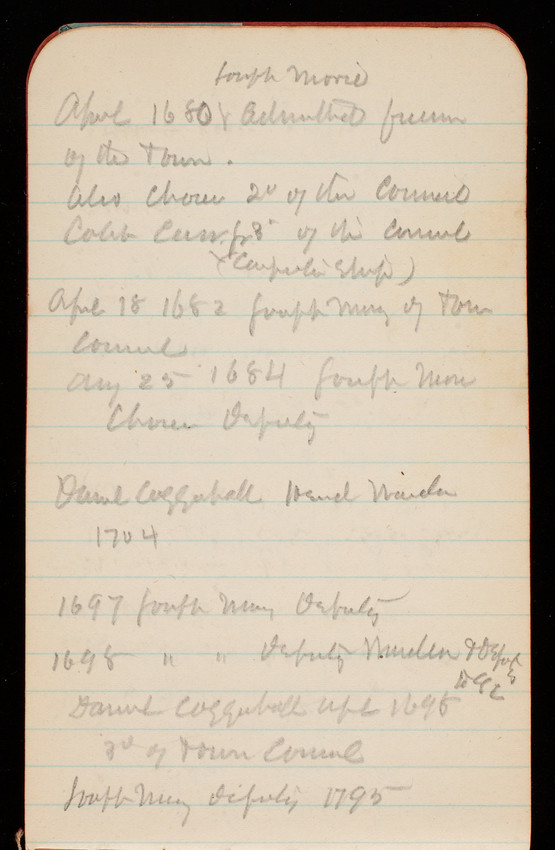 Joseph Morie
April 1680 Admitted freeman
of the Town.
Also Chosen 2d of the Council
Caleb Carr 3d of the Council
Apl 18 1682 Joseph Mory of Town
Council
Aug 25 1684 Joseph Morie
Chosen Deputy
Daniel Coggeshall Head Warden
1704
1697 Joseph Mory Deputy
1698 " " Deputy Warden & Deputy
Daniel Coggeshall Apl 1698
3d of Town Council
Joseph Mory deputy 1795